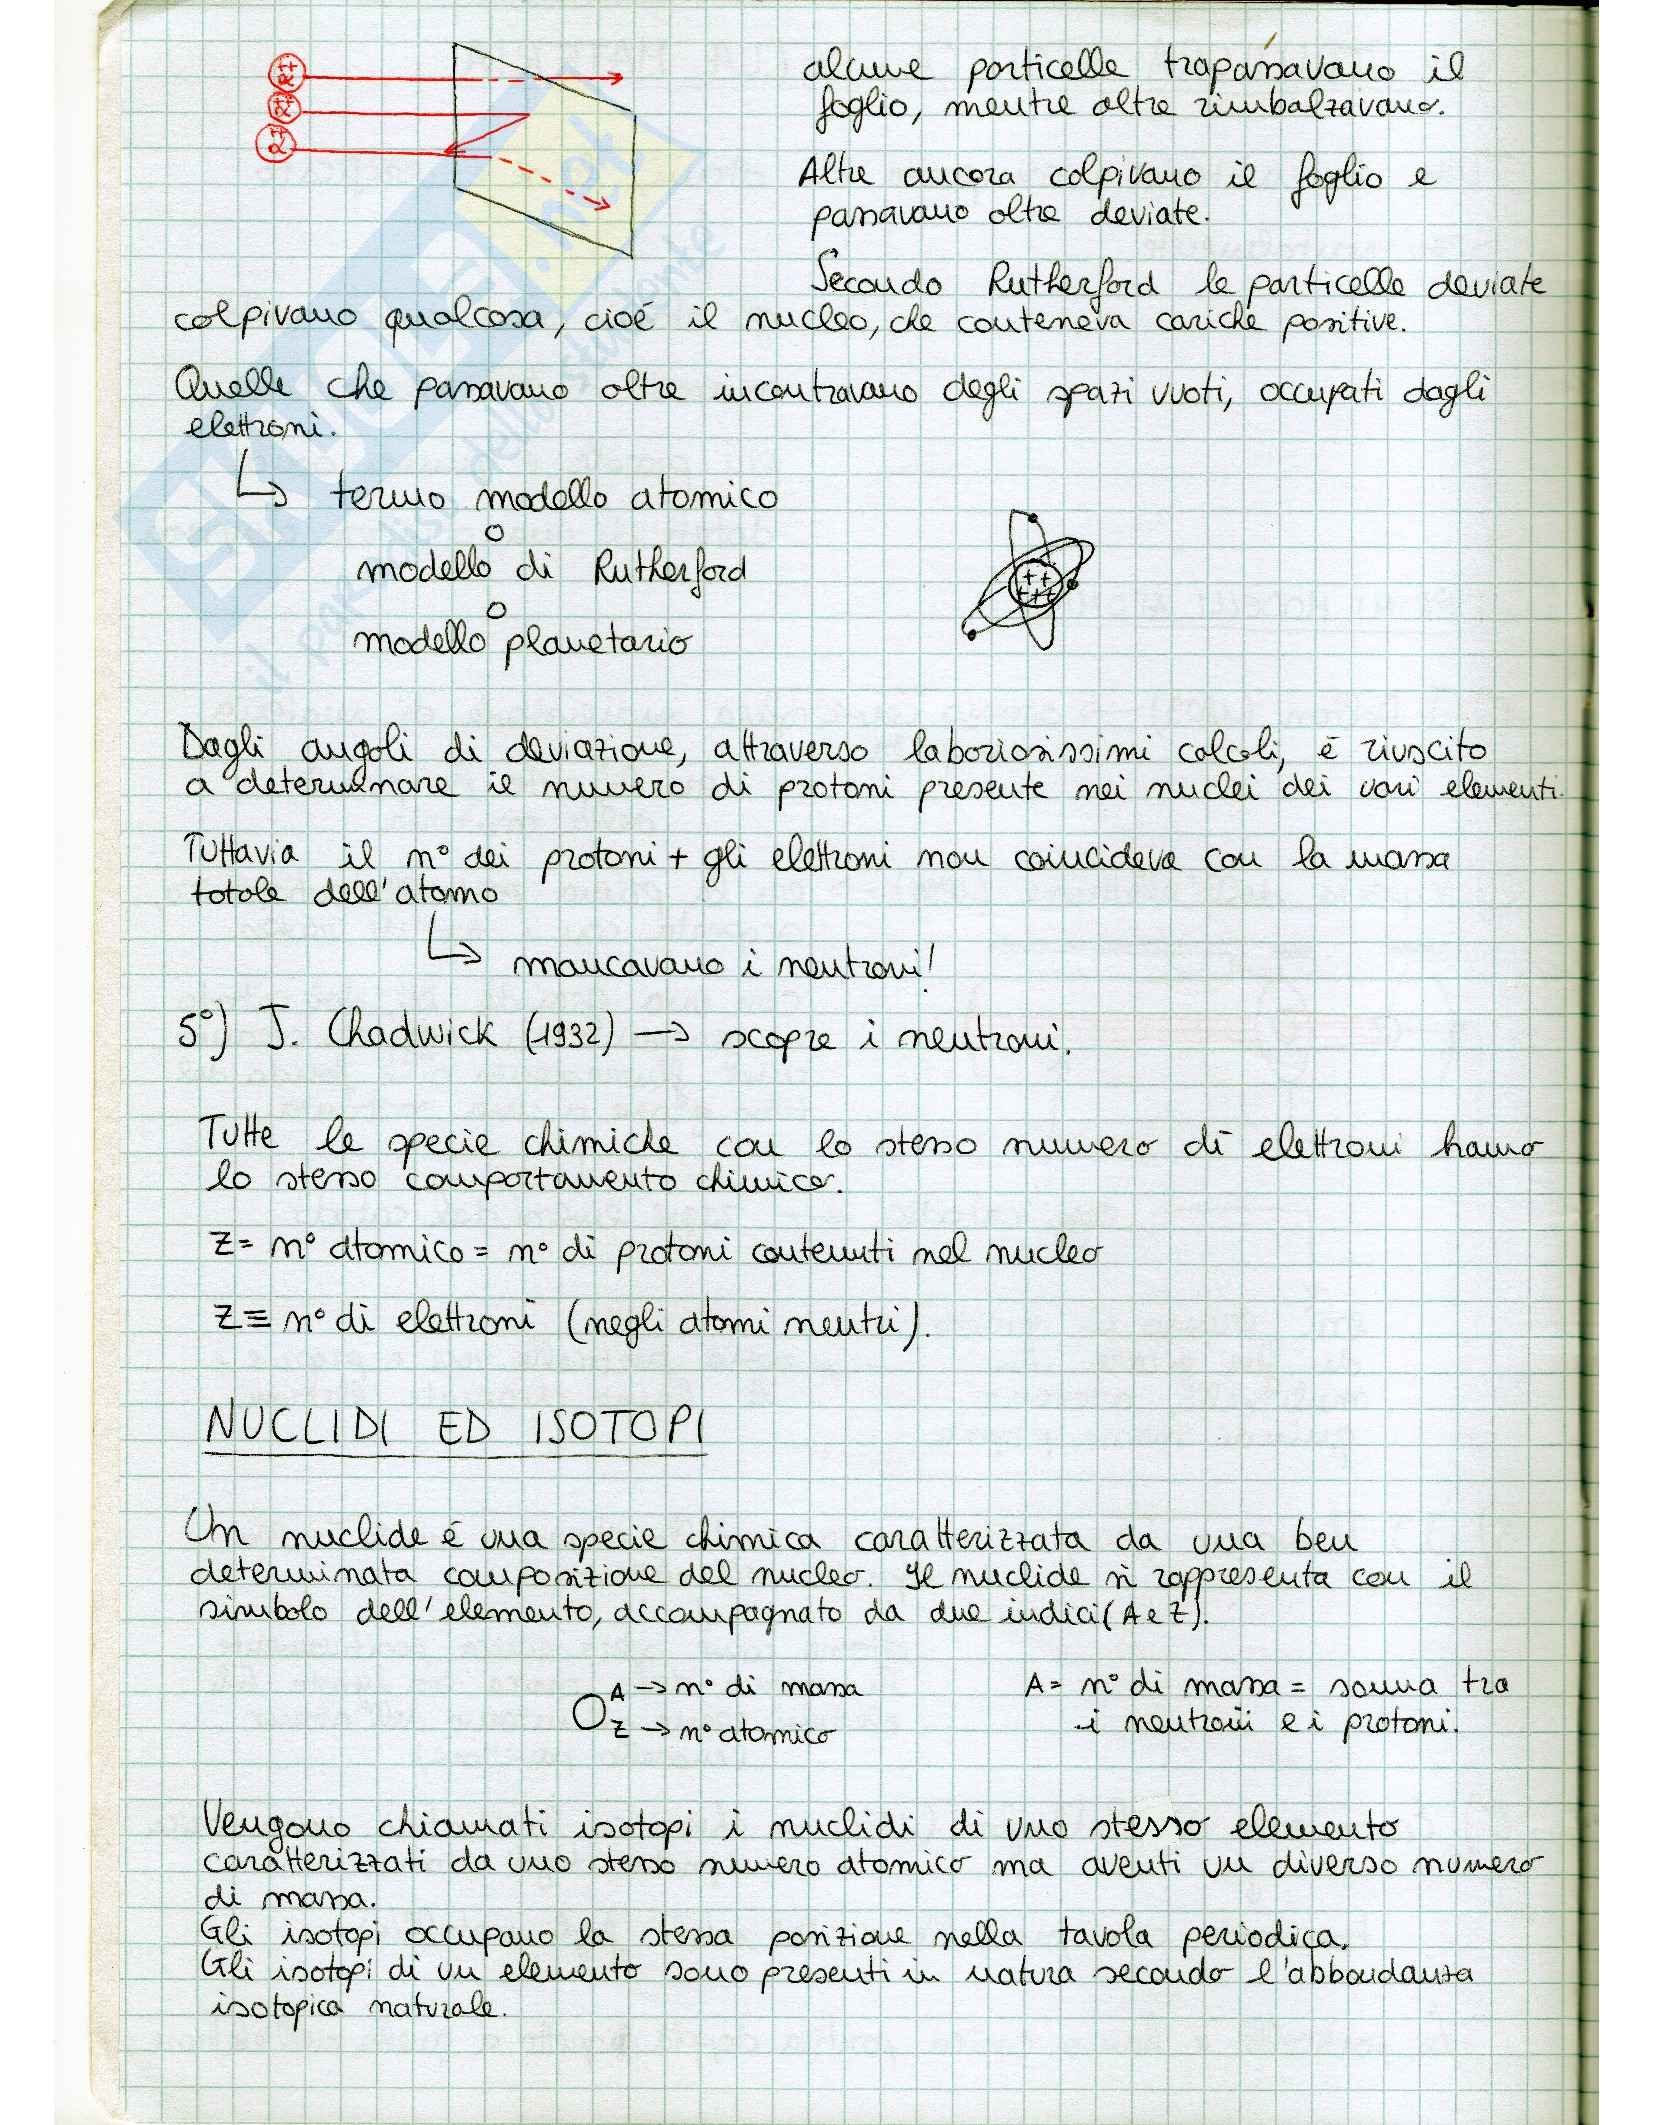 α++
α++
α++
alcune particelle trapassavano il
foglio, mentre altre rimbalzavano.
Altre ancora colpivano il foglio e
passavano oltre deviate.
Secondo Rutherford le particelle deviate
colpivano qualcosa, cioé il nucleo, che conteneva cariche positive.
Quelle che passavano oltre incontravano degli spazi vuoti, occupati dagli
elettroni.
↳ terzo modello atomico
o
modello di Rutherford
o
modello planetario
++
+++
Dagli angoli di deviazione, attraverso laboriosissimi calcoli, é riuscito
a determinare il numero di protoni presente nei nuclei dei vari elementi.
Tuttavia il n° dei protoni + gli elettroni non coincideva con la massa
totale dell'atomo
↳ mancavano i neutroni!
5°) J. Chadwick (1932) → scopre i neutroni.
Tutte le specie chimiche con lo stesso numero di elettroni hanno
lo stesso comportamento chimico.
Z= n° atomico = n° di protoni contenuti nel nucleo
Z≡ n° di elettroni (negli atomi neutri).
NUCLIDI ED ISOTOPI
Un nuclide é una specie chimica caratterizzata da una ben
determinata composizione del nucleo. Il nuclide si rappresenta con il
simbolo dell'elemento, accompagnato da due indici (A e Z).
A → n° di massa
O
Z → n° atomico
A= n° di massa = somma tra
i neutroni e i protoni.
Vengono chiamati isotopi i nuclidi di uno stesso elemento
caratterizzati da uno stesso numero atomico ma aventi un diverso numero
di massa.
Gli isotopi occupano la stessa posizione nella tavola periodica.
Gli isotopi di un elemento sono presenti in natura secondo l'abbondanza
isotopica naturale.
SKUOLA.net